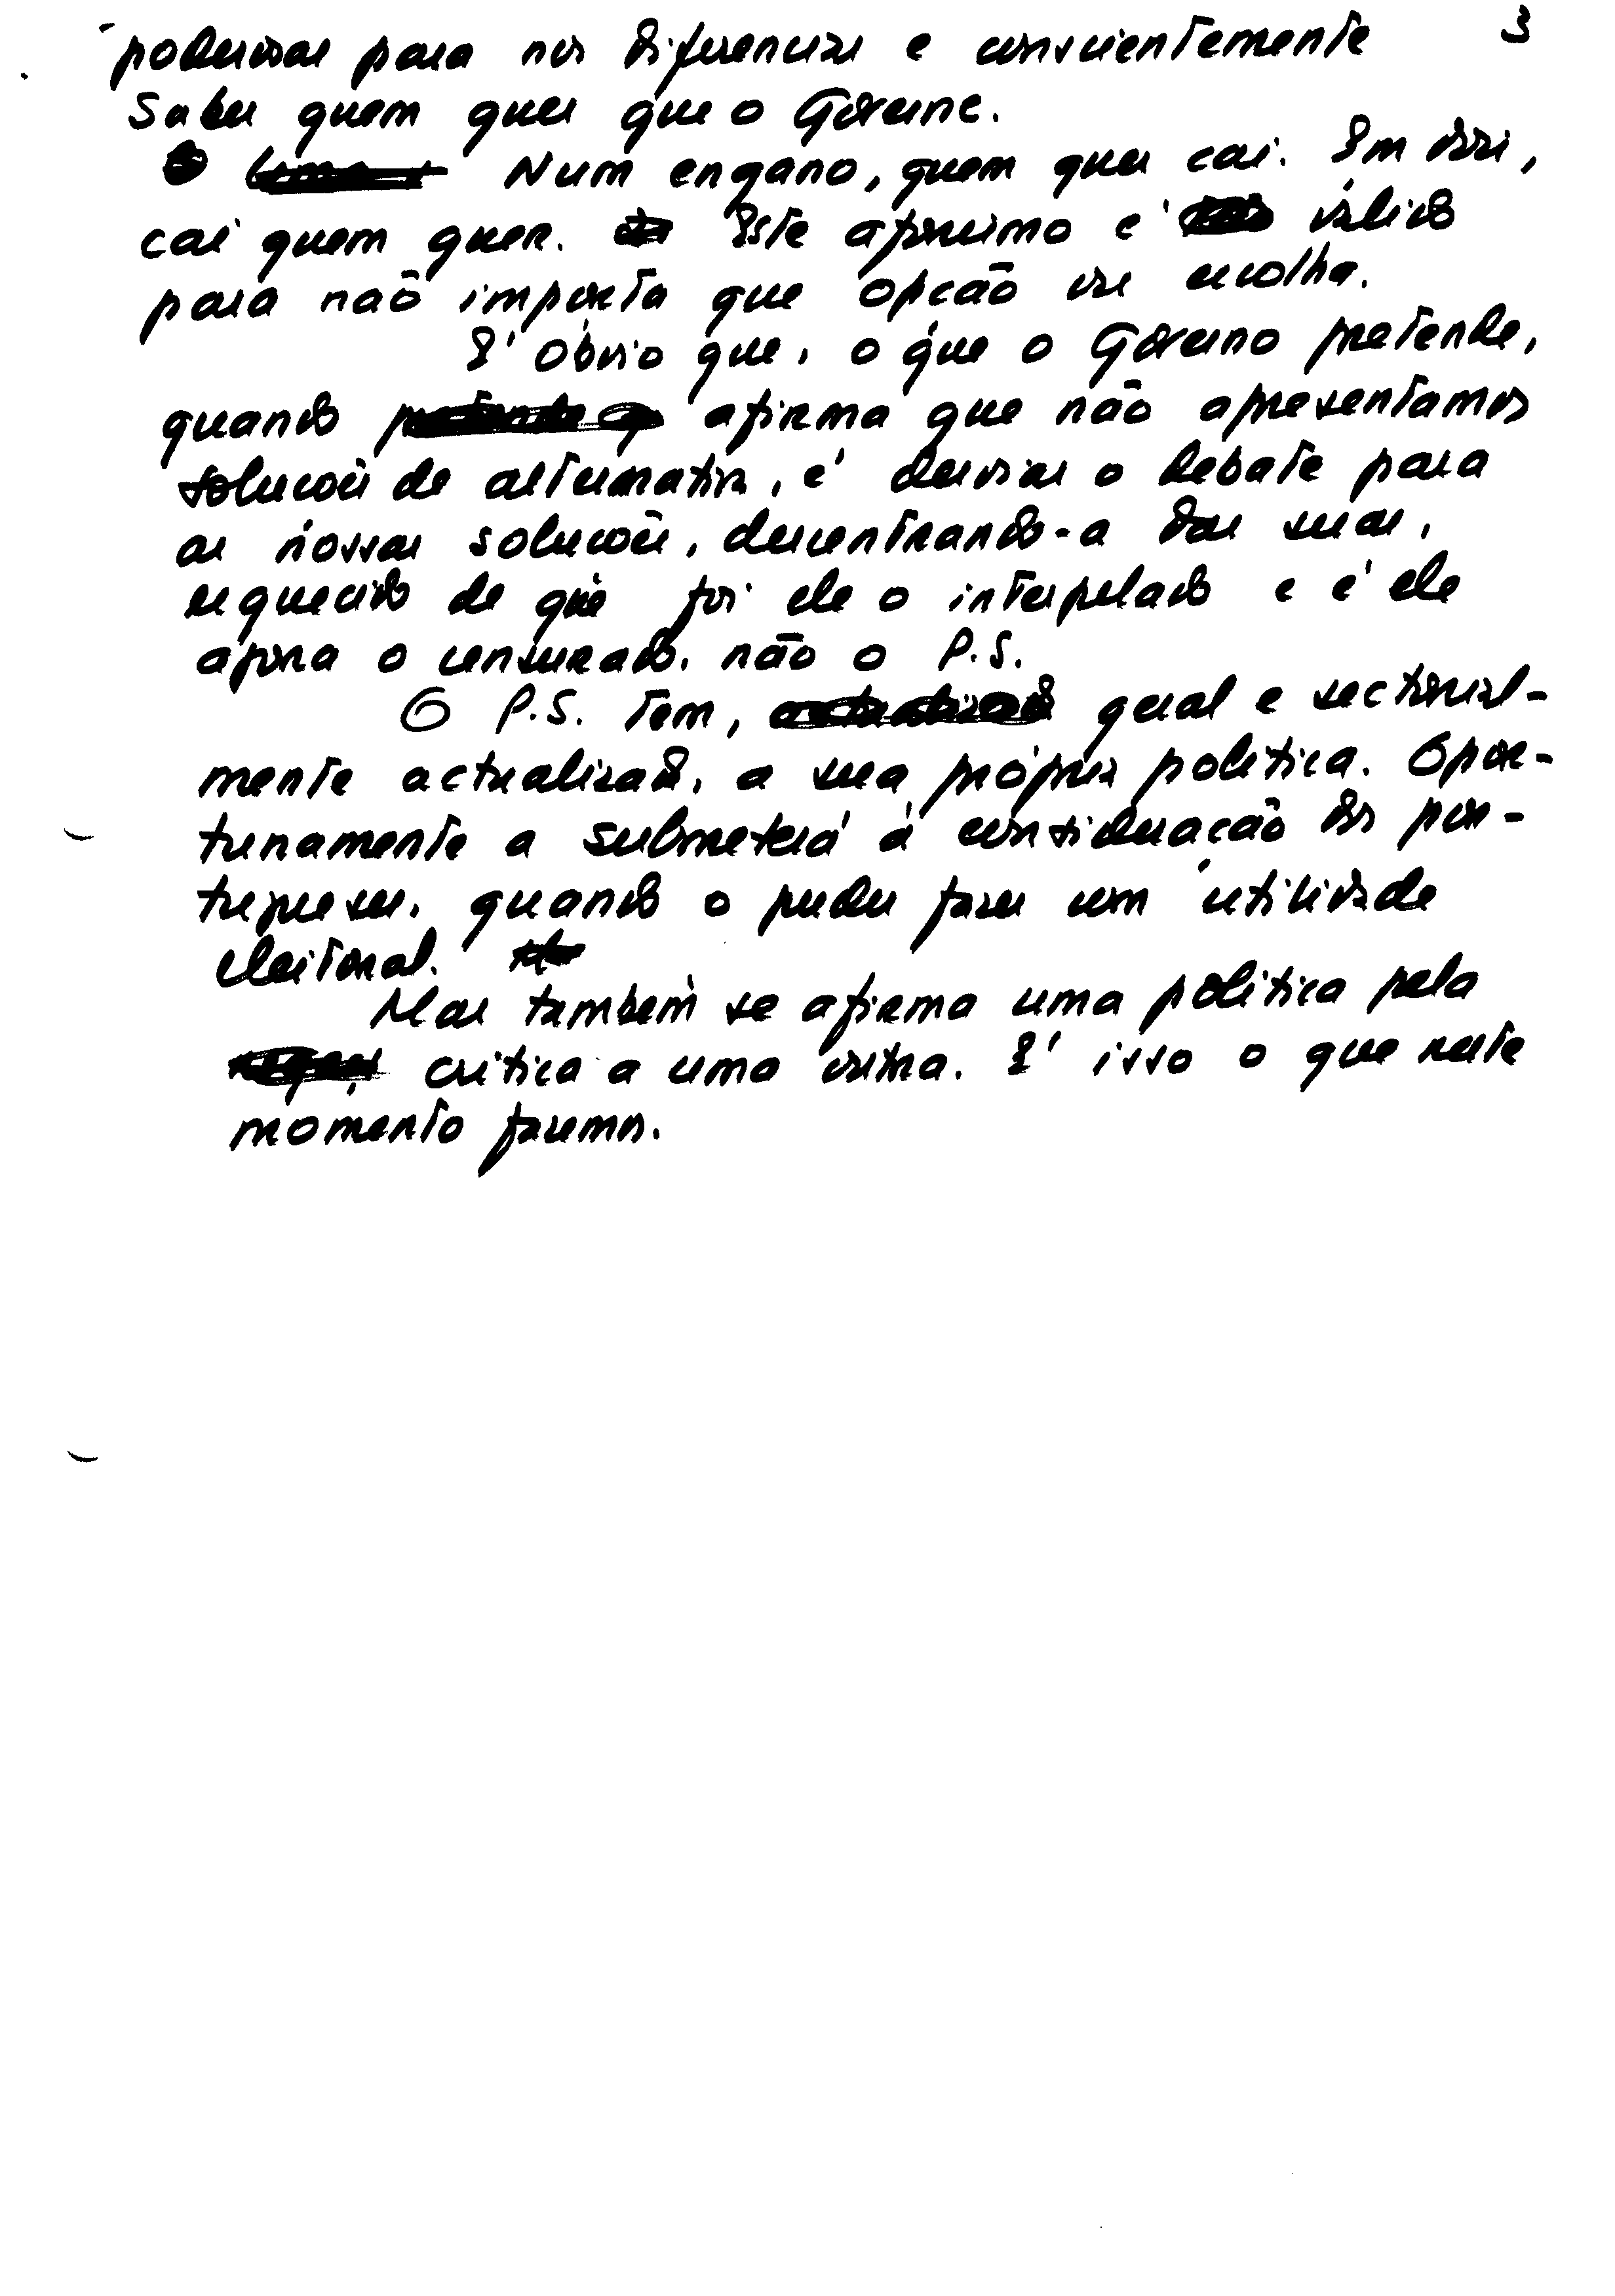 3
poderosas para nos diferenciar e conscientemente
saber quem quer que o Governe.
Num engano, quem quer cai. Em dois,
cai quem quer. Este aforismo é válido
para não importa que opção ou escolha.
É óbvio que, o que o Governo pretende,
quando afirma que não apresentamos
soluções de alternativa, é desviar o debate para
as nossas soluções, descentrando-a das suas,
esquecido de que foi ele o interpelado e é ele
agora o censurado, não o P.S.
O P.S. tem, geral e sectorial-
mente actualizada, a sua própria política. Opor-
tunamente a submeterá à consideração dos por-
tugueses, quando o puder fazer com utilidade
eleitoral.
Mas também se afirma uma política pela
crítica a uma outra. É isso o que neste
momento faremos.